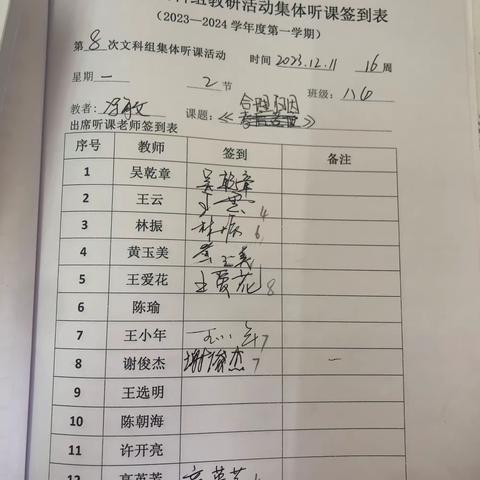 科组教研活动集体听课签到表
（2023—2024学年度第一学期）
第 8 次文科组集体听课活动 时间 2023.12.11 16 周
星期 一 2 节 班级: 八(6)
教者: 课题: 《 合理 》
出席听课老师签到表
序号 教师 签到 备注
1 吴乾章 吴乾章
2 王云 王云 4
3 林振 林振 6
4 黄玉美 黄玉美
5 王爱花 王爱花 8
6 陈瑜
7 王小年 王小年 7
8 谢俊杰 谢俊杰 7
9 王选明
10 陈朝海
11 许开亮
12 高英芳